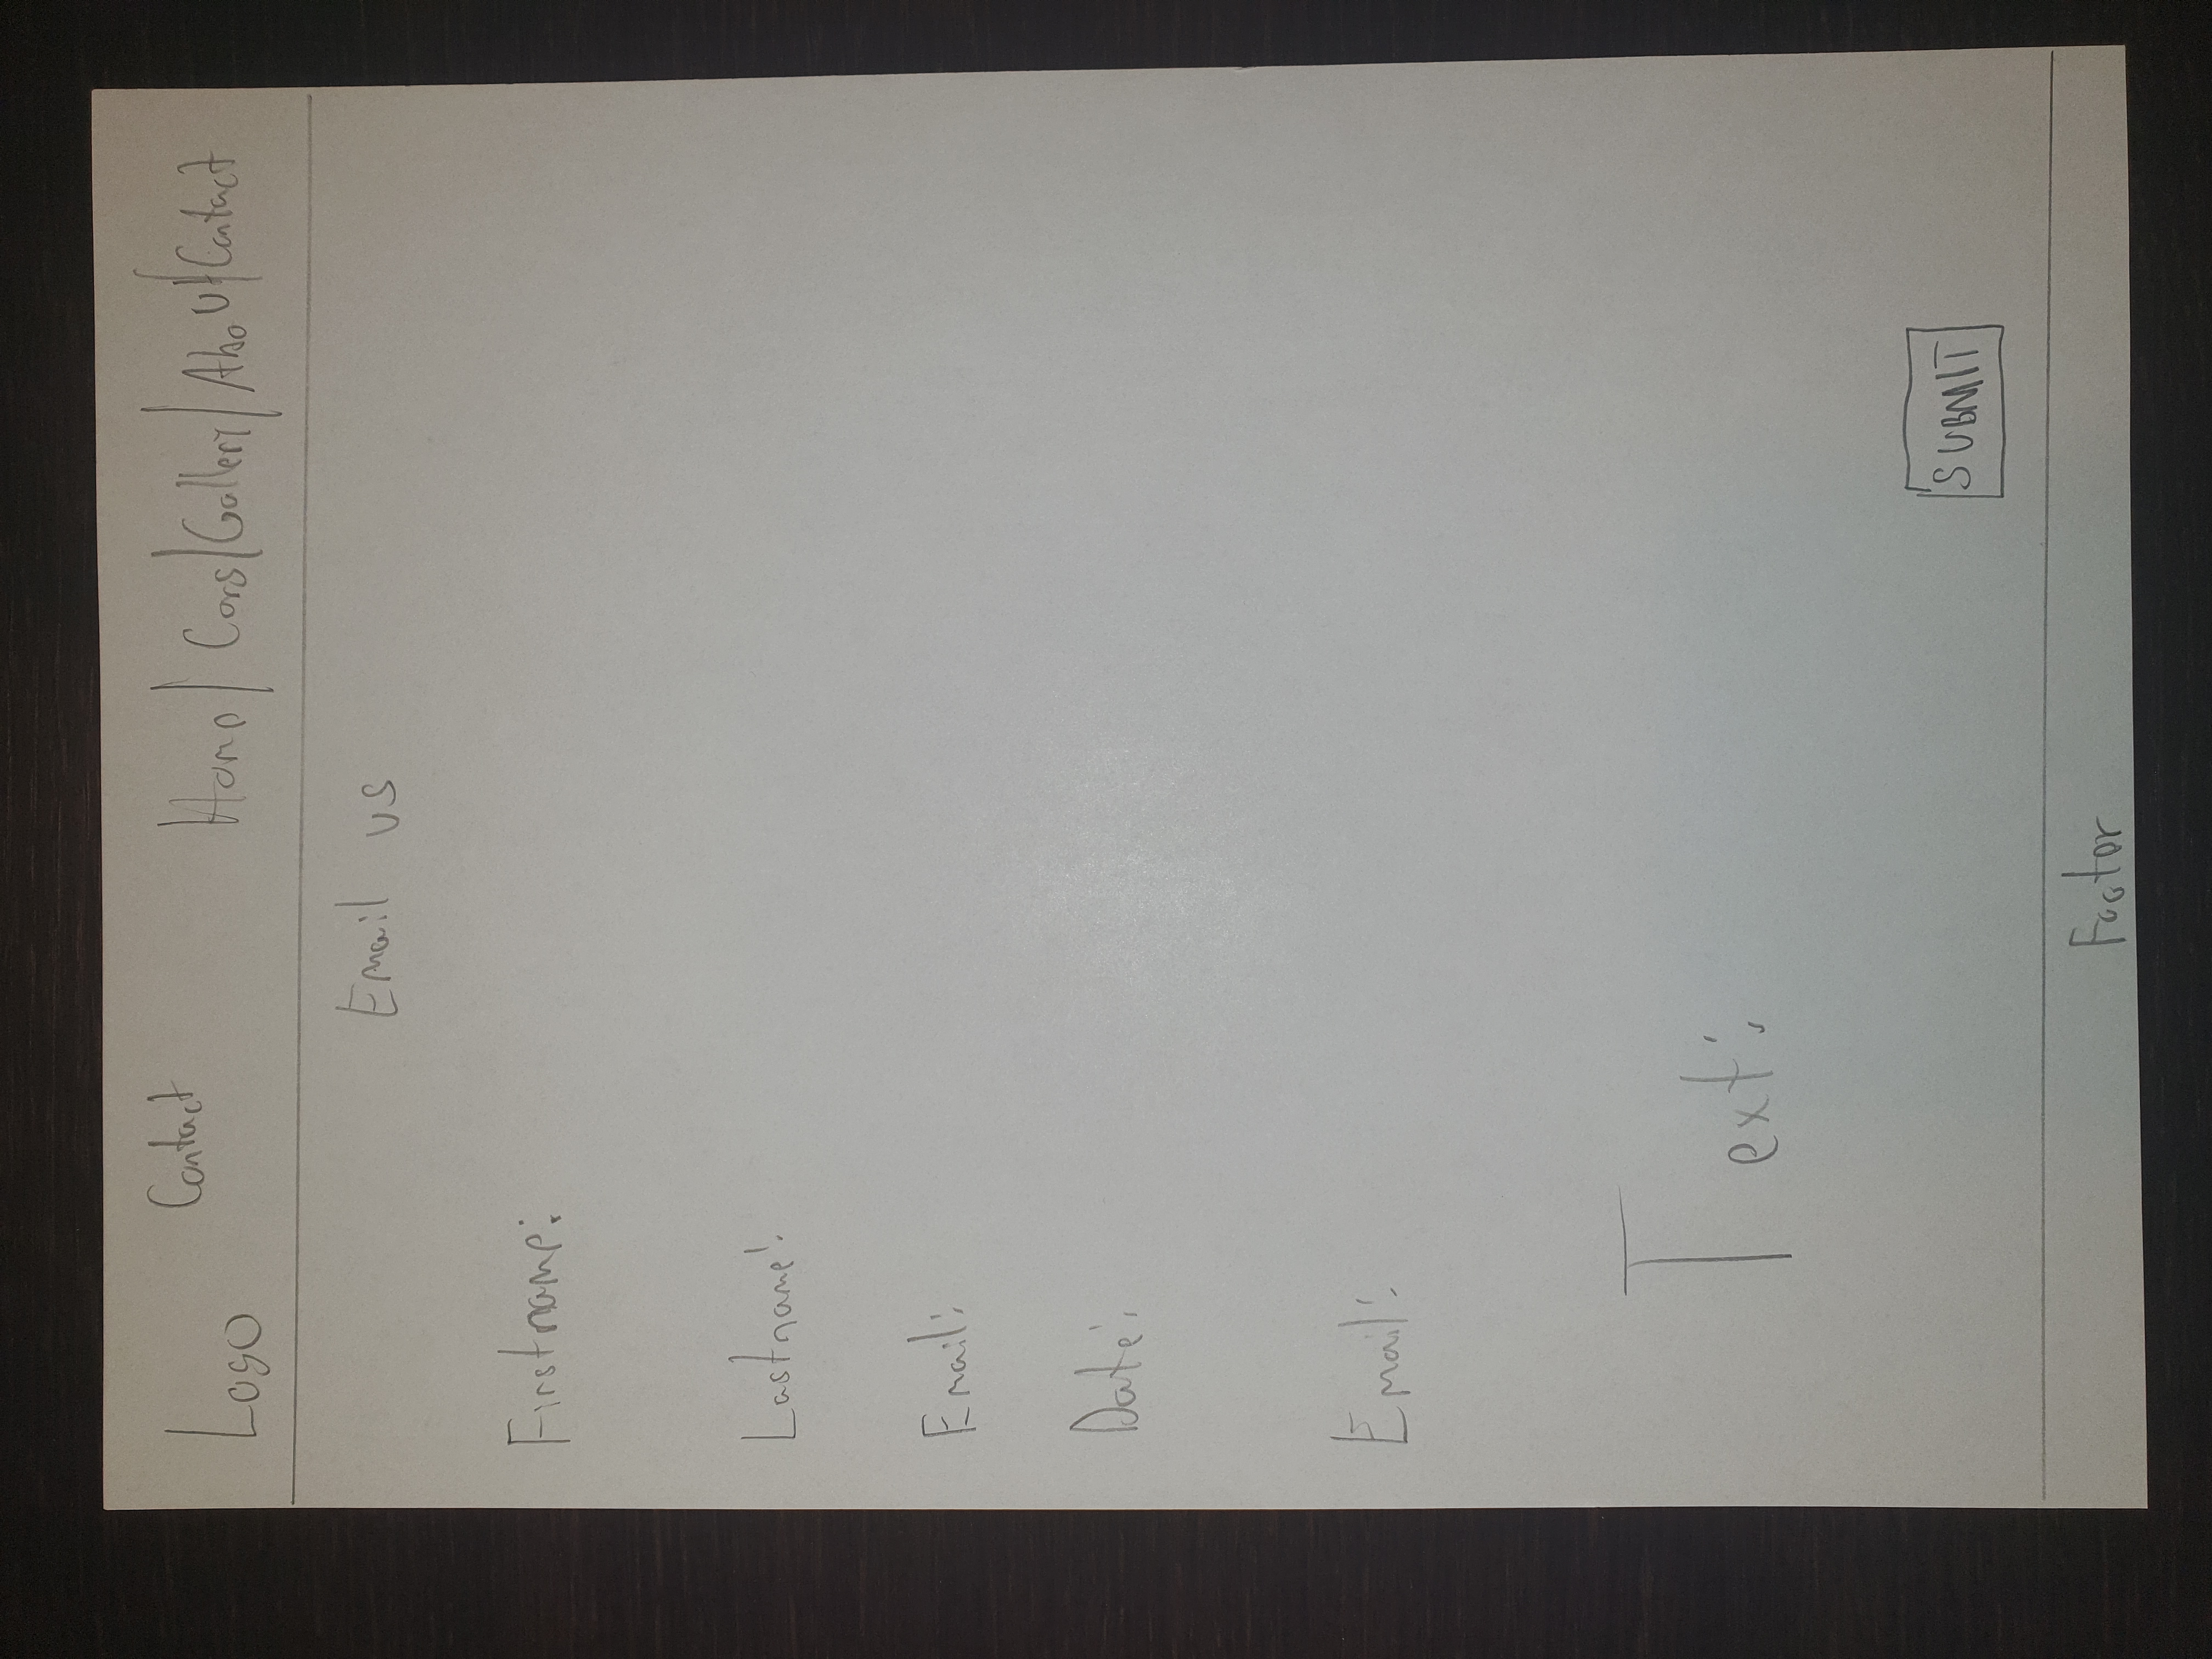 Logo Contact Home | Cars | Gallery | About | Contact
Email us
Firstname:
Lastname:
Email:
Date:
Email:
Text:
SUBMIT
Footer